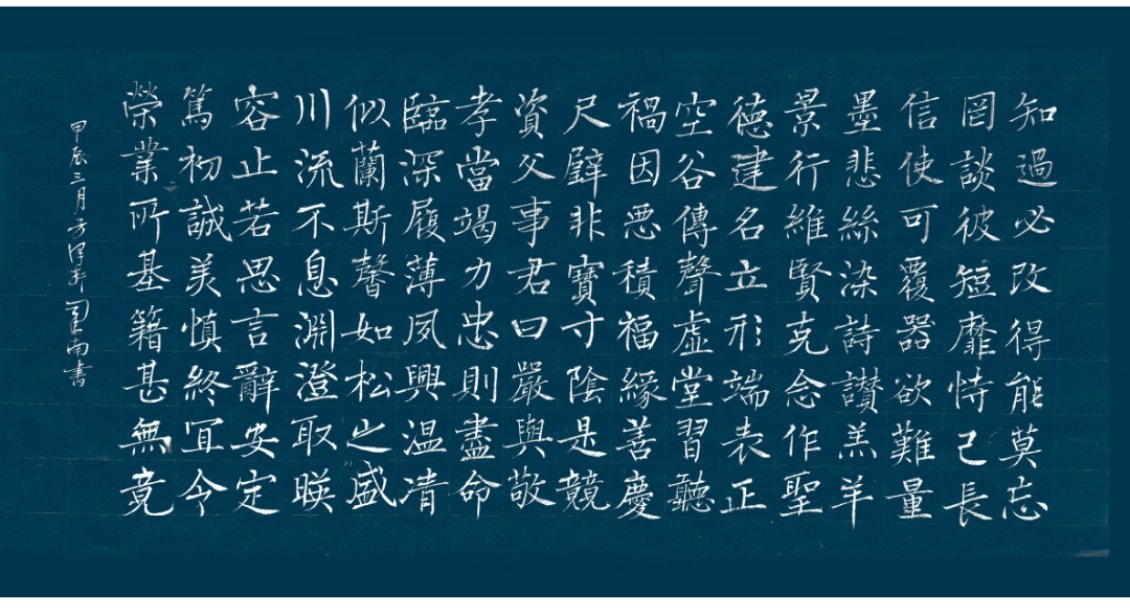 知過必改得能莫忘
罔談彼短靡恃己長
信使可覆器欲難量
墨悲絲染詩讃羔羊
景行維賢克念作聖
德建名立形端表正
空谷傳聲虛堂習聽
禍因悪積福緣善慶
尺璧非寶寸陰是競
資父事君曰嚴與敬
孝當竭力忠則盡命
臨深履薄夙興温凊
似蘭斯馨如松之盛
川流不息淵澄取暎
容止若思言辭安定
篤初誠美慎終宜令
榮業所基籍甚無竟
甲辰三月方南書